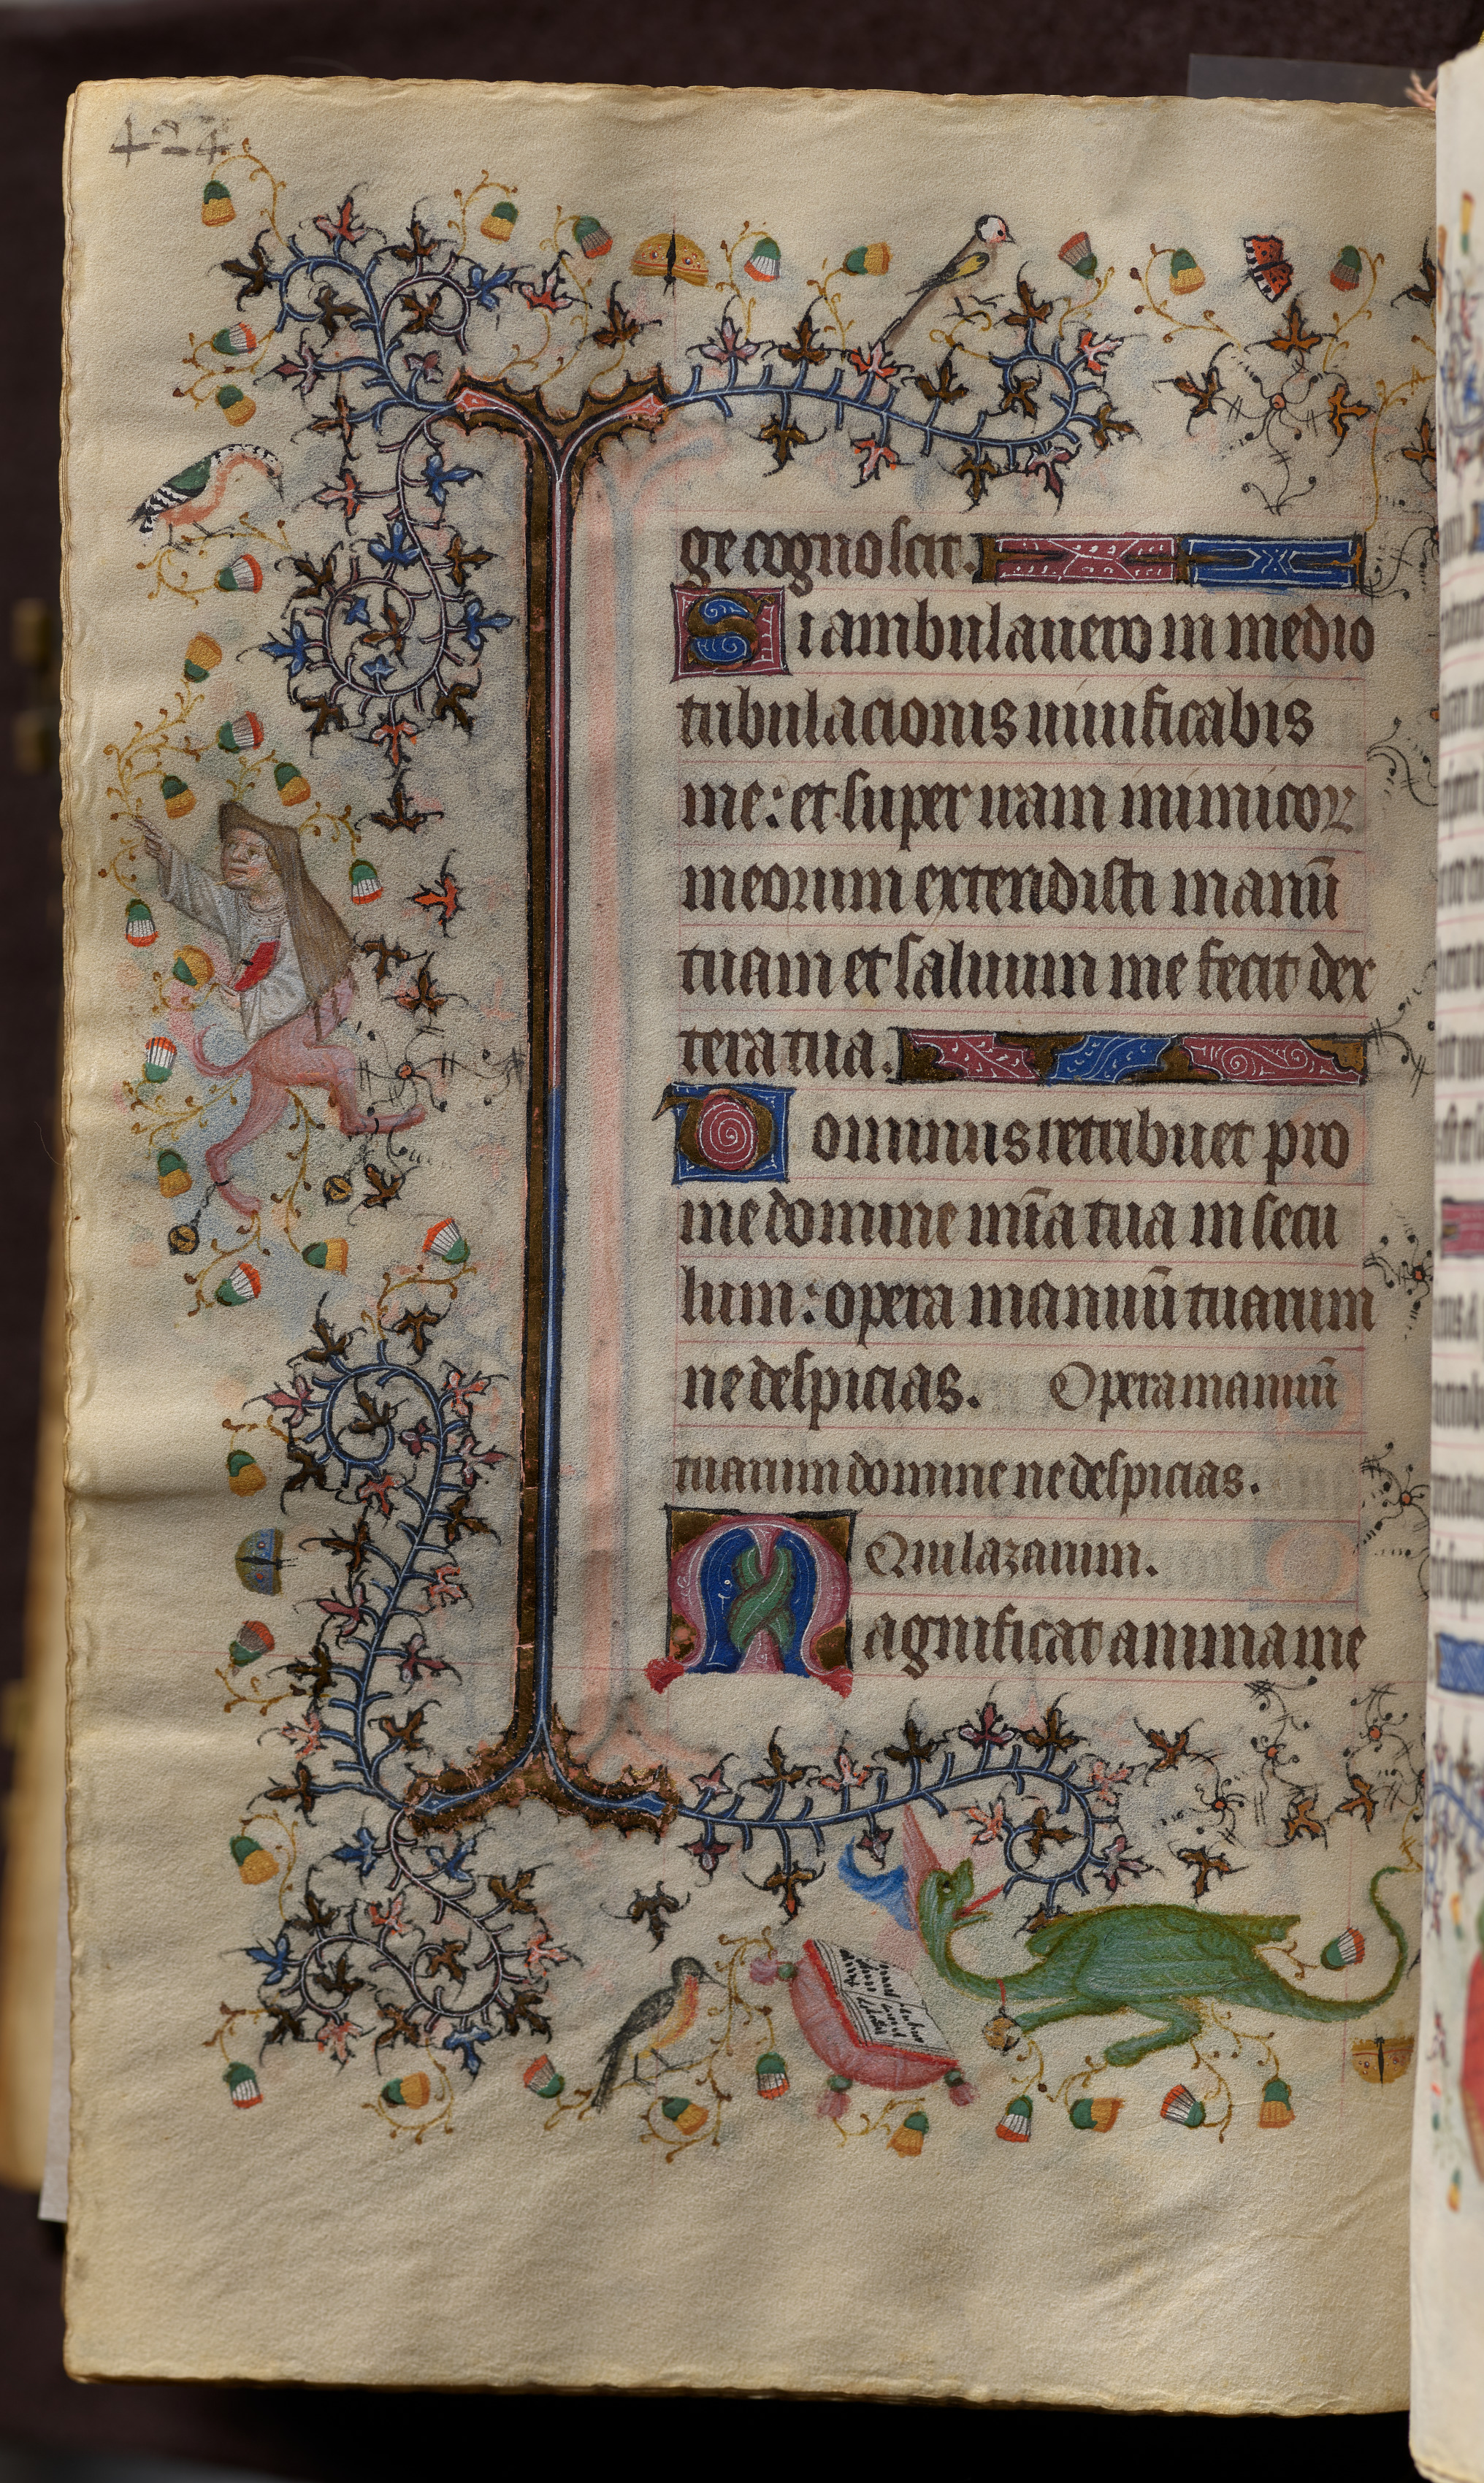 424
ge cognoscit.
Si ambulauero in medio
tribulacionis uiuificabis
me: et super iram inimicoꝝ
meorum extendisti manū
tuam et saluum me fecit dex
tera tua.
Dominus retribuet pro
me domine mīa tua in secu
lum: opera manuū tuarum
ne despicias. Opera manuū
tuarum domine ne despicias.
Qui lazarum.
Magnificat anima me